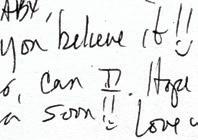 ABY,
you believe it!!
o, can I? Hope
a soon!! Love